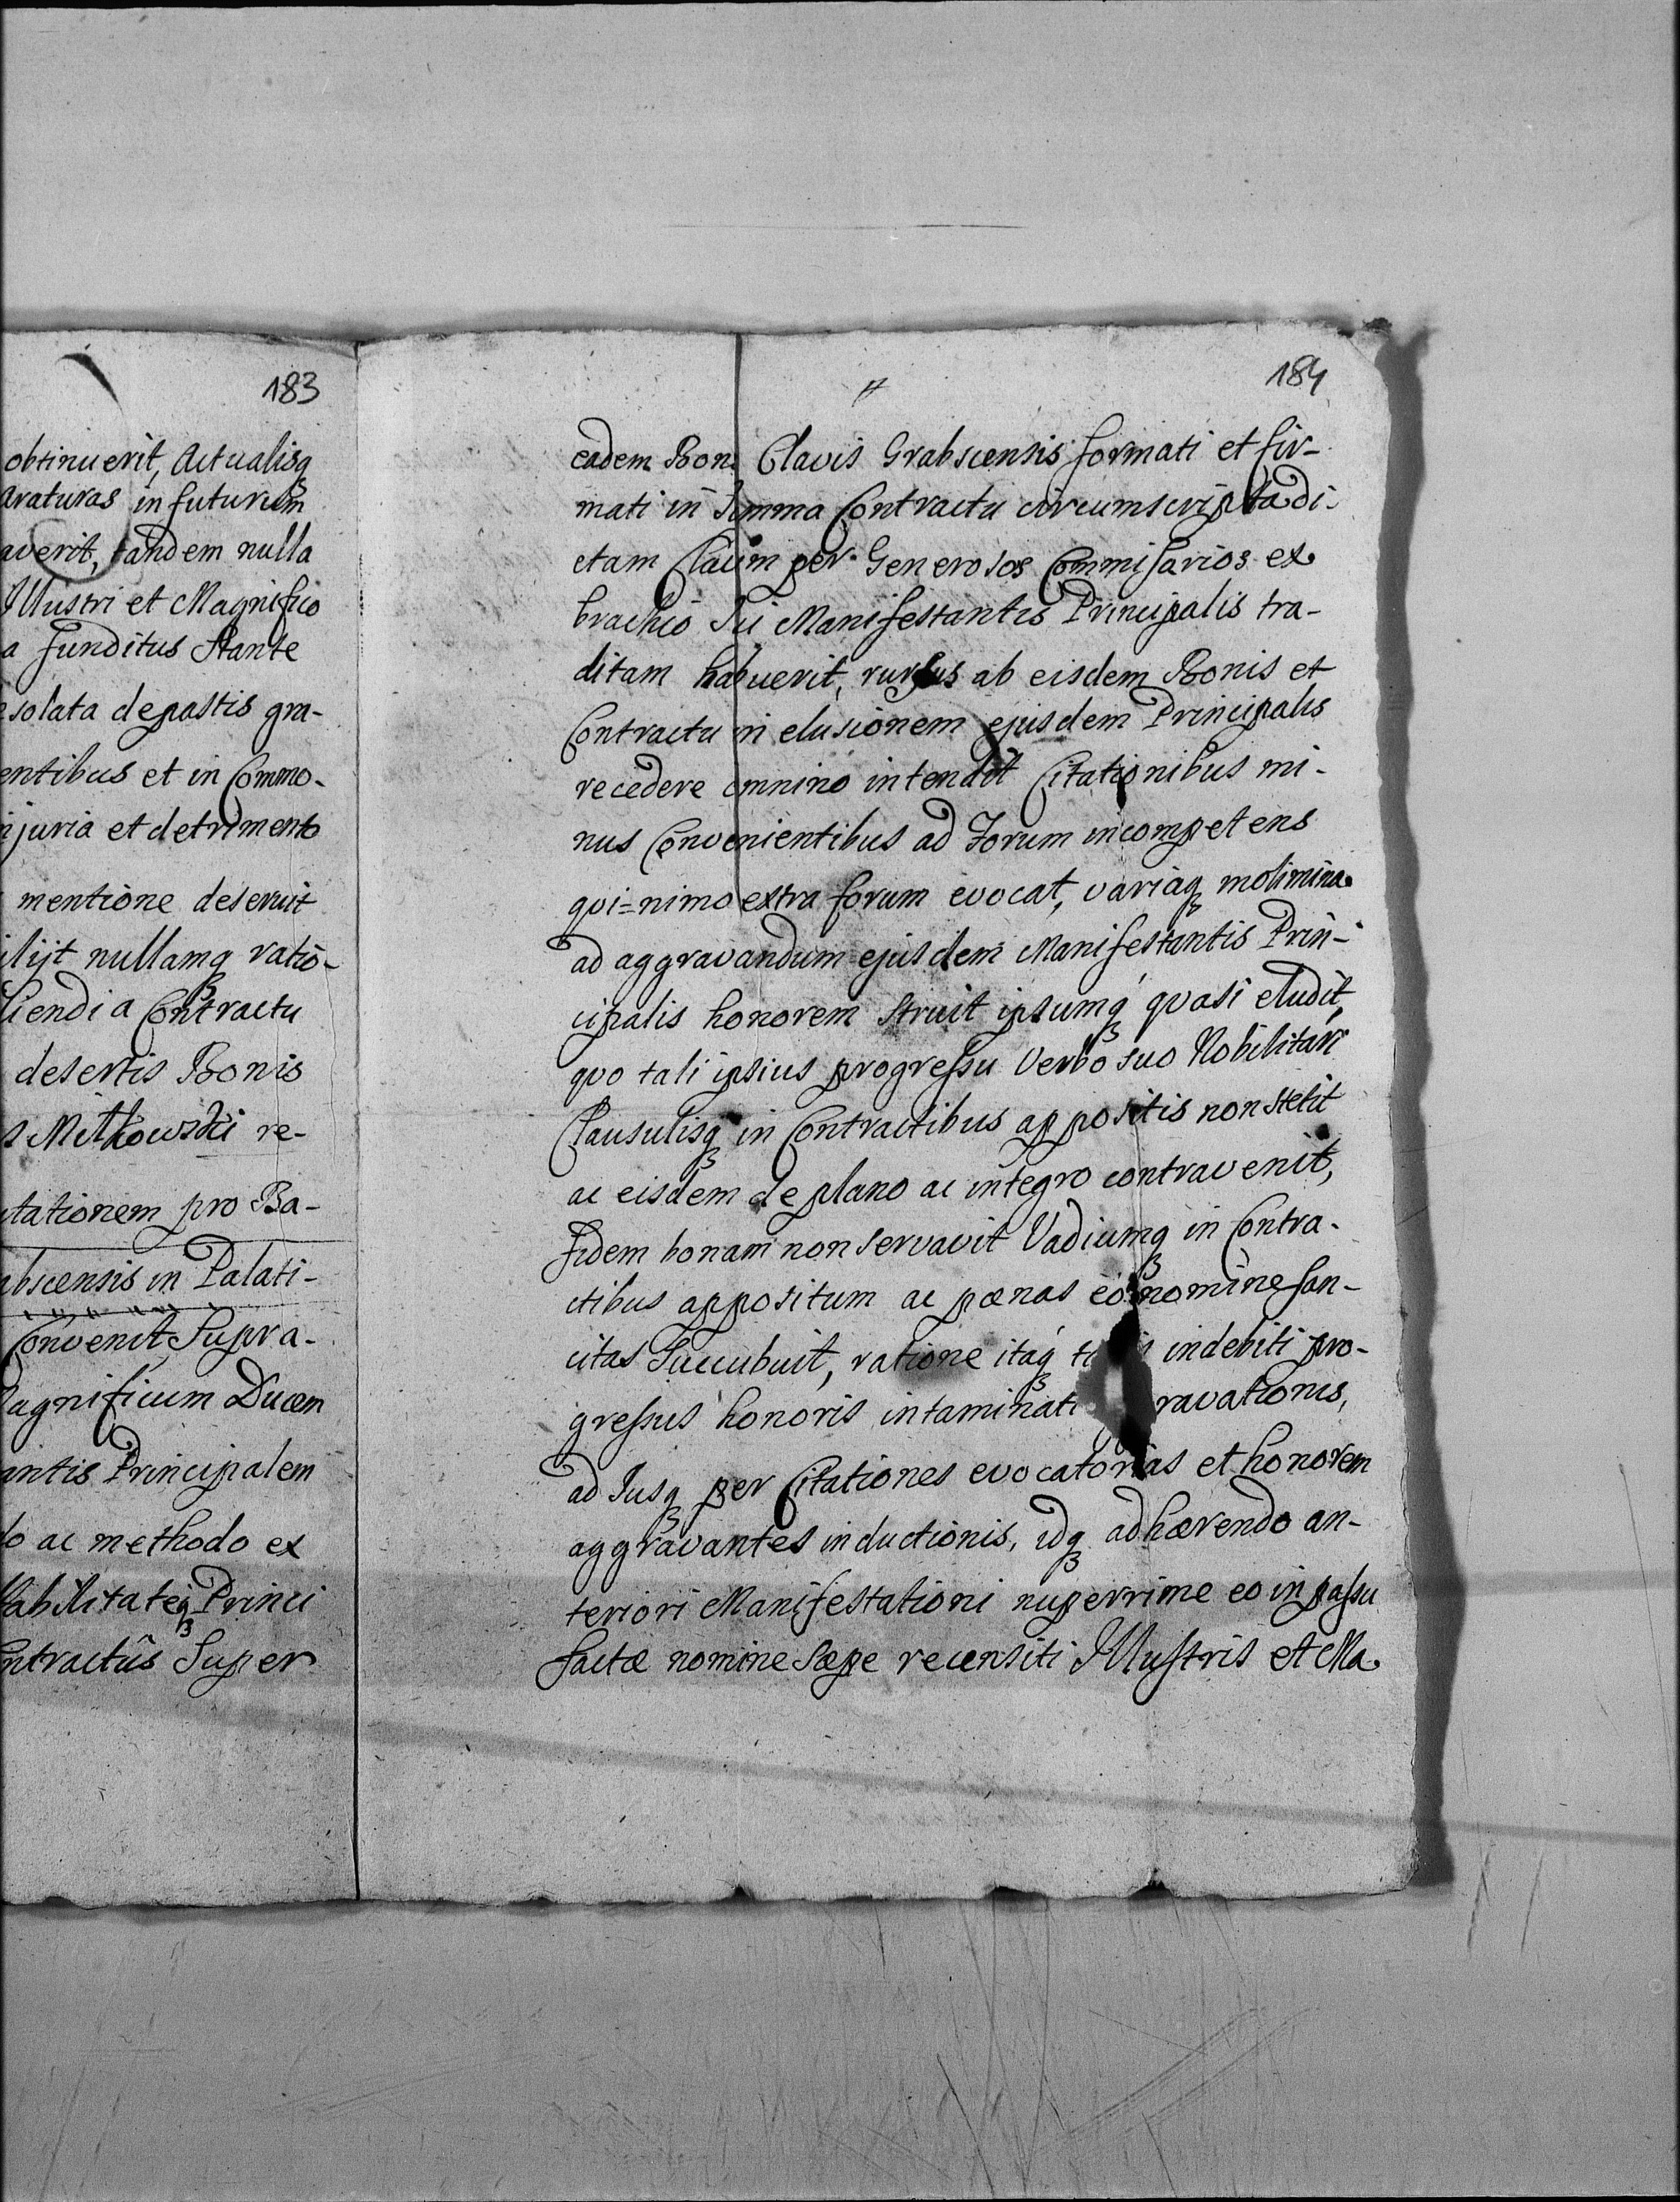 183
obtinuerit, Actualisq
araturas in futurum
averit, tandem nulla
Illustri et Magnifico
a funditus Stante
esolata depastis gra-
entibus et in Commo-
njuria et detrimento
mentione deseruit
ilijt nullamq ratio-
liendi a Contractu
desertis Bonis
s Mithowski re-
utationem pro Ba-
abscensis in Palati-
Convenit Supra-
agnificum Ducem
antis Principalem
do ac methodo ex
Habilitateq Princi
ontractûs Super
184
eadem Bon. Clavis Grabscensis formati et fir-
mati in Summa Contractu circumscripta di-
ctam Clavim per Generosos Commisarios ex
brachio Sui Manifestantis Principalis tra-
ditam habuerit, rursus ab eisdem Bonis et
Contractu in elusionem ejusdem Principalis
recedere omnino intendit Citationibus mi-
nus Convenientibus ad Forum incompetens
qvi=nimo extra forum evocat, variaq molimina
ad aggravandum ejusdem Manifestantis Prin-
cipalis honorem Struit ipsumq qvasi eludit,
qvo tali ipsius progressu Verbo suo Nobilitari
Clausulisq in Contractibus appositis non stetit
ac eisdem de plano ac integro contravenit,
fidem bonam non servavit Vadiumq in Contra-
ctibus appositum ac pœnas eo nomine san-
citas Succubuit, ratione itaq indebiti pro-
gressus honoris intaminati ravationis,
ad Jusq per Citationes evocatorias et honorem
aggravantes inductionis, idq adhærendo an-
teriori Manifestationi nuperrime eo in passu
factæ nomine Sæpe recensiti Illustris et Ma